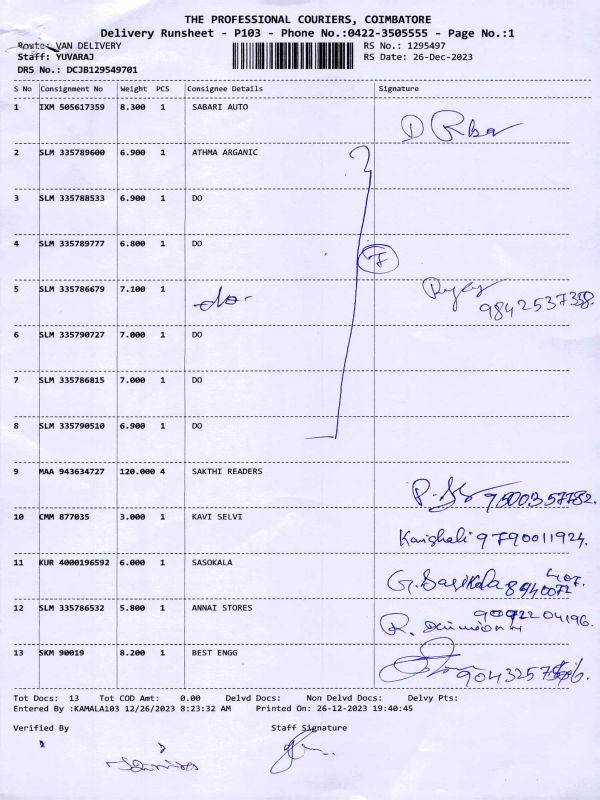 THE PROFESSIONAL COURIERS, COIMBATORE
Delivery Runsheet - P103 - Phone No.:0422-3505555 - Page No.:1
Route: VAN DELIVERY RS No.: 1295497
Staff: YUVARAJ RS Date: 26-Dec-2023
DRS No.: DCJB129549701
S No Consignment No Weight PCS Consignee Details Signature
1 IXM 505617359 8.300 1 SABARI AUTO
2 SLM 335789600 6.900 1 ATHMA ARGANIC
3 SLM 335788533 6.900 1 DO
4 SLM 335789777 6.800 1 DO
7
5 SLM 335786679 7.100 1 do-
9842537358.
6 SLM 335790727 7.000 1 DO
7 SLM 335786815 7.000 1 DO
8 SLM 335790510 6.900 1 DO
9 MAA 943634727 120.000 4 SAKTHI READERS
9500357782.
10 CMM 877035 3.000 1 KAVI SELVI
9790011924.
11 KUR 4000196592 6.000 1 SASOKALA
G. Sasikala
12 SLM 335786532 5.800 1 ANNAI STORES
13 SKM 90019 8.200 1 BEST ENGG
Tot Docs: 13 Tot COD Amt: 0.00 Delvd Docs: Non Delvd Docs: Delvy Pts:
Entered By :KAMALA103 12/26/2023 8:23:32 AM Printed On: 26-12-2023 19:40:45
Verified By Staff Signature